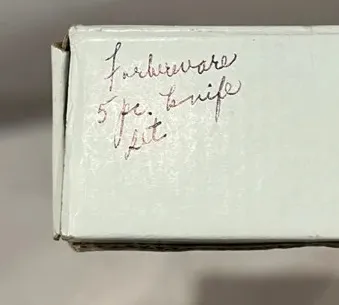 Farberware
5 pc. knife
set